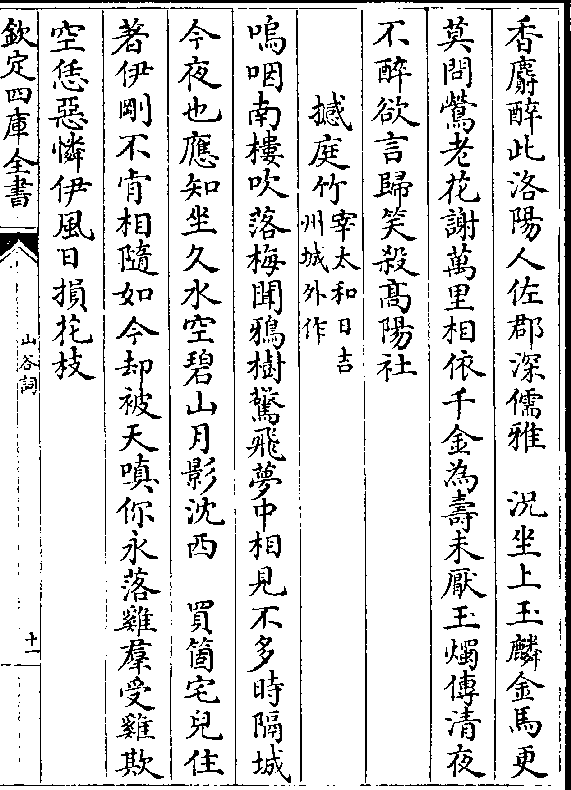 香麝醉此洛陽人佐郡深儒雅　況坐上玉麟金馬更
莫問鶯老花謝萬里相依千金為壽未厭玉燭傳清夜
不醉欲言歸笑殺髙陽社
撼庭竹宰太和日吉州城外作
嗚咽南樓吹落梅聞鴉樹驚飛夢中相見不多時隔城
今夜也應知坐久水空碧山月影沈西　買箇宅兒住
著伊剛不肯相隨如今却被天嗔你永落雞羣受雞欺
空恁惡憐伊風日損花枝
欽定四庫全書
山谷詞
十一